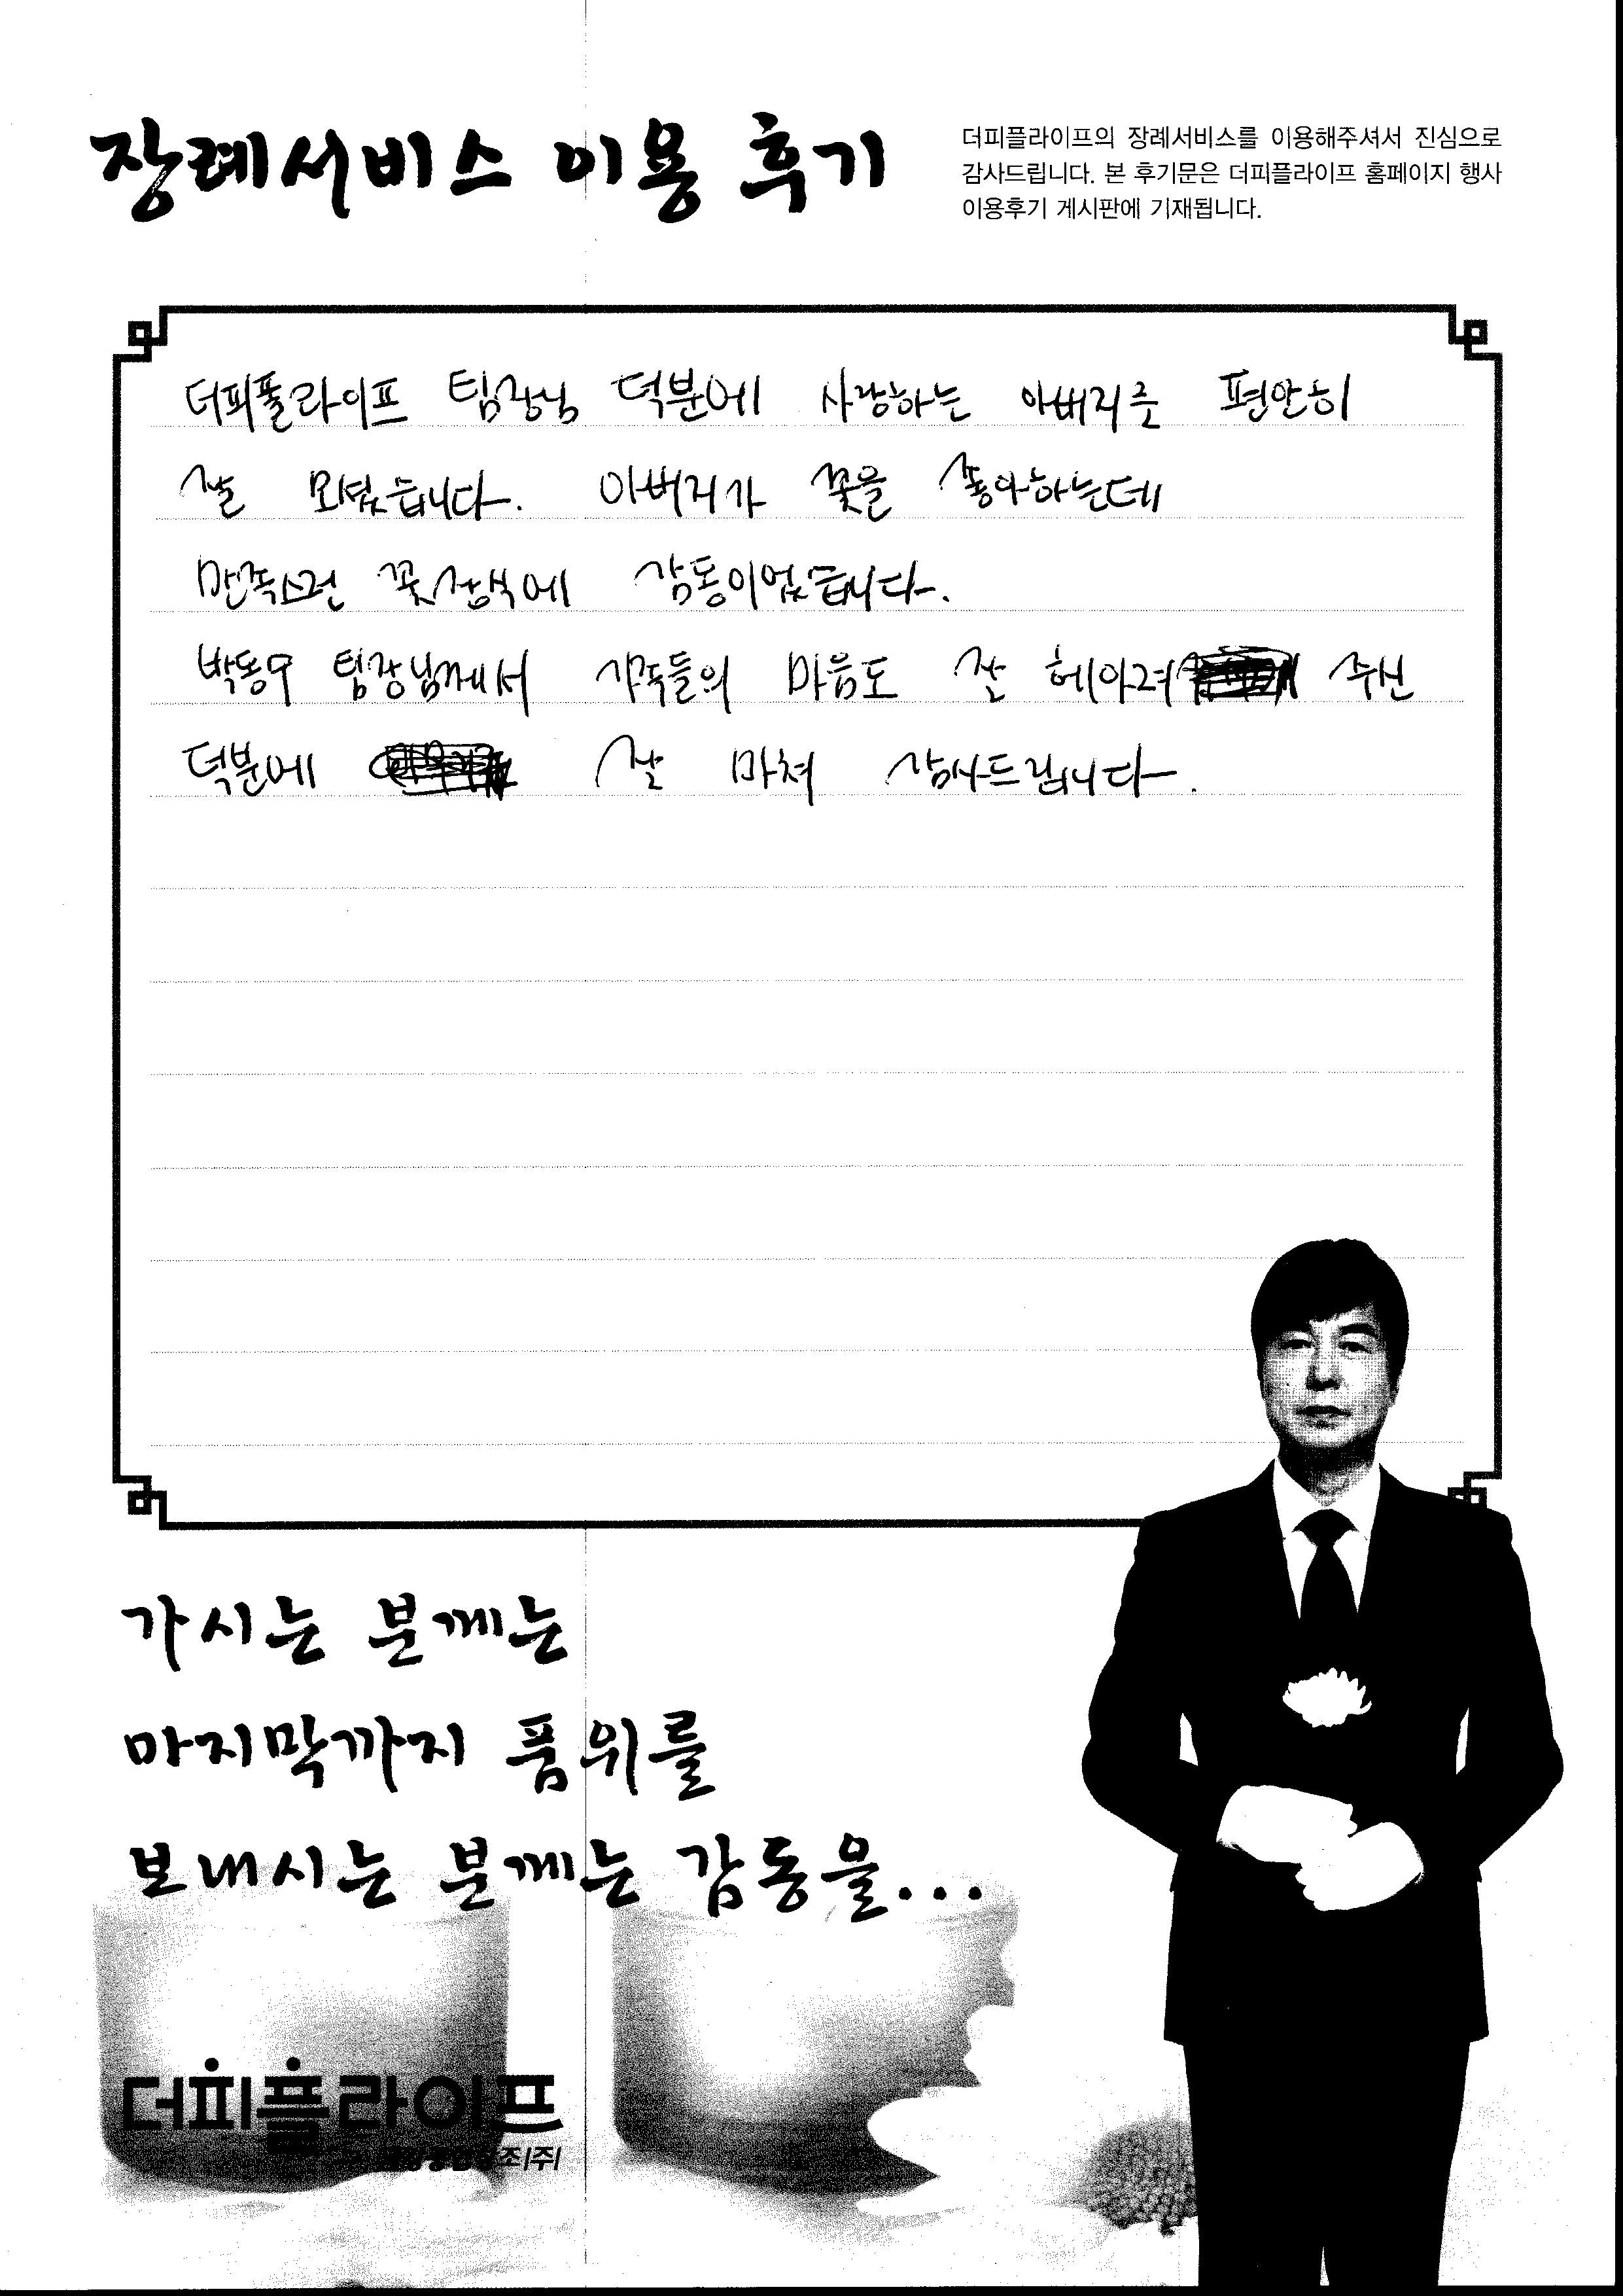 장례서비스 이용 후기
더피플라이프의 장례서비스를 이용해주셔서 진심으로
감사드립니다. 본 후기문은 더피플라이프 홈페이지 행사
이용후기 게시판에 기재됩니다.
더피플라이프 팀장님 덕분에 사랑하는 아버지를 편안히
잘 모셨습니다. 아버지가 꽃을 좋아하는데
만족스런 꽃장식에 감동이었습니다.
박동우 팀장님께서 가족들의 마음도 잘 헤아려 주신
덕분에 잘 마쳐 감사드립니다.
가시는 분께는
마지막까지 품위를
보내시는 분께는 감동을...
더피플라이프